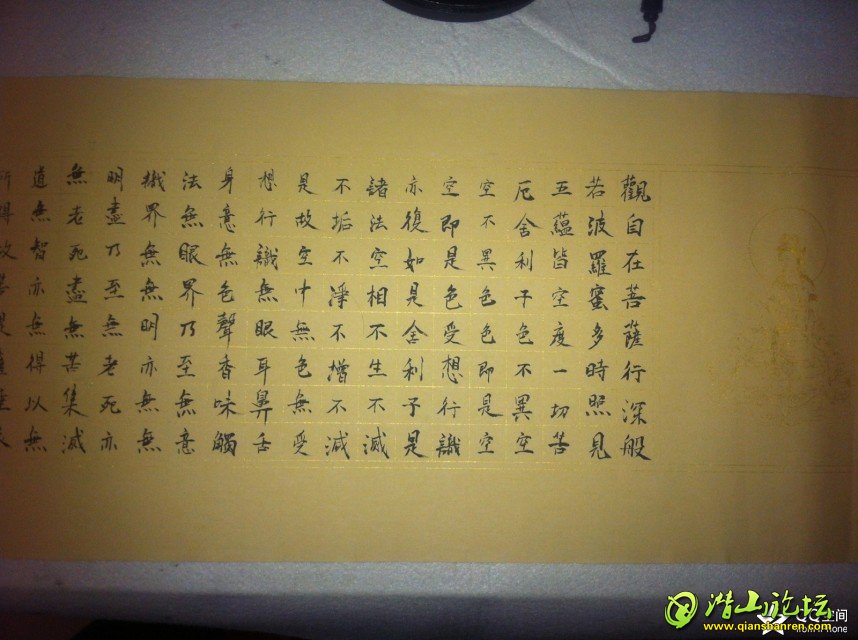 觀自在菩薩行深般
若波羅蜜多時照見
五蘊皆空度一切苦
厄舍利子色不異空
空不異色色即是空
空即是色受想行識
亦復如是舍利子是
諸法空相不生不滅
不垢不淨不增不減
是故空中無色無受
想行識無眼耳鼻舌
身意無色聲香味觸
法無眼界乃至無意
識界無無明亦無無
明盡乃至無老死亦
無老死盡無苦集滅
道無智亦無得以無
所得故菩提薩埵
潜山论坛
www.qianshanren.com
QQ空间